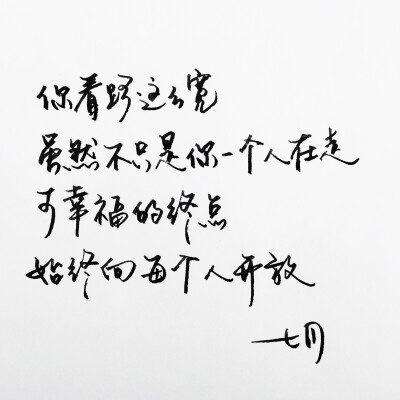 你看路这么宽
虽然不只是你一个人在走
可幸福的终点
始终向每个人开放
七月